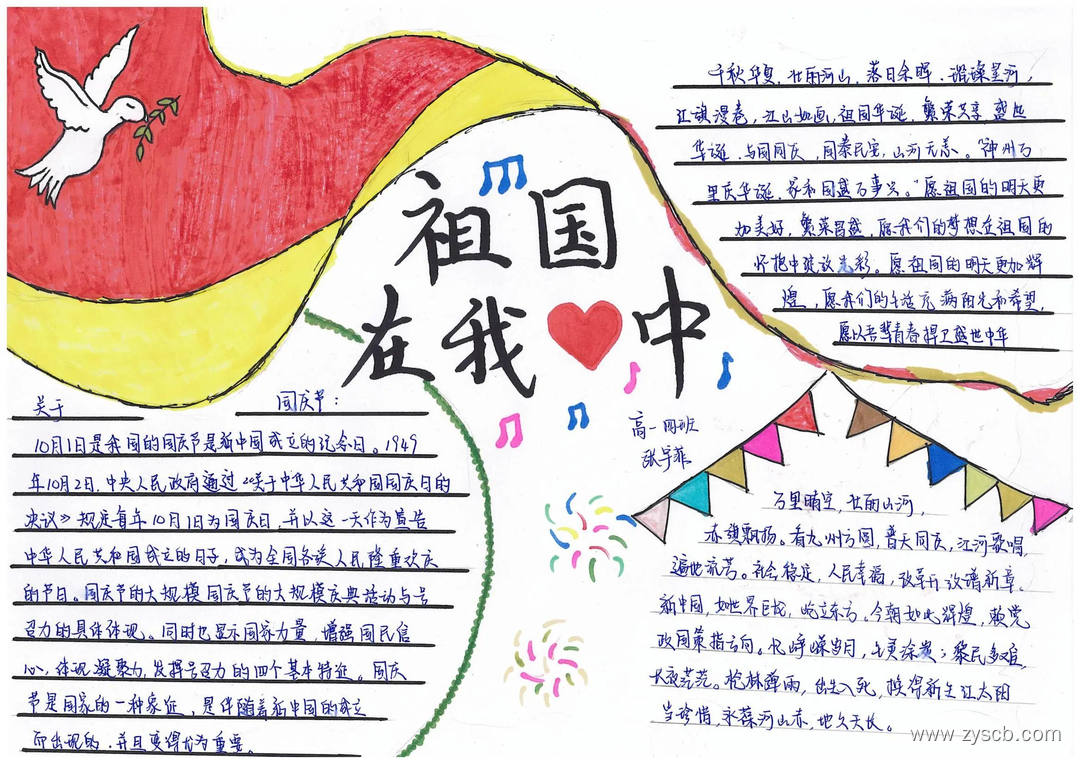 祖国
在我中
高一四班
张宇菲
千秋华夏，壮丽河山，落日余晖，
红旗漫卷，江山如画，祖国华诞，繁荣共享 盛世
华诞，与国同庆，国泰民安，山河无恙。"神州万
里庆华诞，家和国盛万事兴。"愿祖国的明天更
加美好，繁荣昌盛，愿我们的梦想在祖国的
怀抱中绽放光彩。愿祖国的明天更加辉
煌，愿我们的生活充满阳光和希望，
愿以吾辈青春捍卫盛世中华
关于 国庆节：
10月1日是我国的国庆节是新中国成立的纪念日。1949
年10月2日，中央人民政府通过《关于中华人民共和国国庆日的
决议》规定每年10月1日为国庆日，并以这一天作为宣告
中华人民共和国成立的日子，成为全国各族人民隆重欢庆
的节日。国庆节的大规模国庆节的大规模庆典活动与号
召力的具体体现。同时也显示国家力量，增强国民信
心，体现凝聚力，发挥号召力的四个基本特征。国庆
节是国家的一种象征，是伴随着新中国的成立
而出现的，并且变得尤为重要。
万里晴空，壮丽山河，
赤旗飘扬。看九州方圆，普天同庆，江河歌唱，
遍地流芳。社会稳定，人民幸福，改革开放谱新章。
新中国，如世界巨龙，屹立东方。今朝如此辉煌，赖党
政国策指方向。忆峥嵘岁月，生灵涂炭；黎民多难，
长夜茫茫。枪林弹雨，出生入死，换得新生红太阳
当珍惜，永葆河山赤，地久天长。
www.zyscb.com